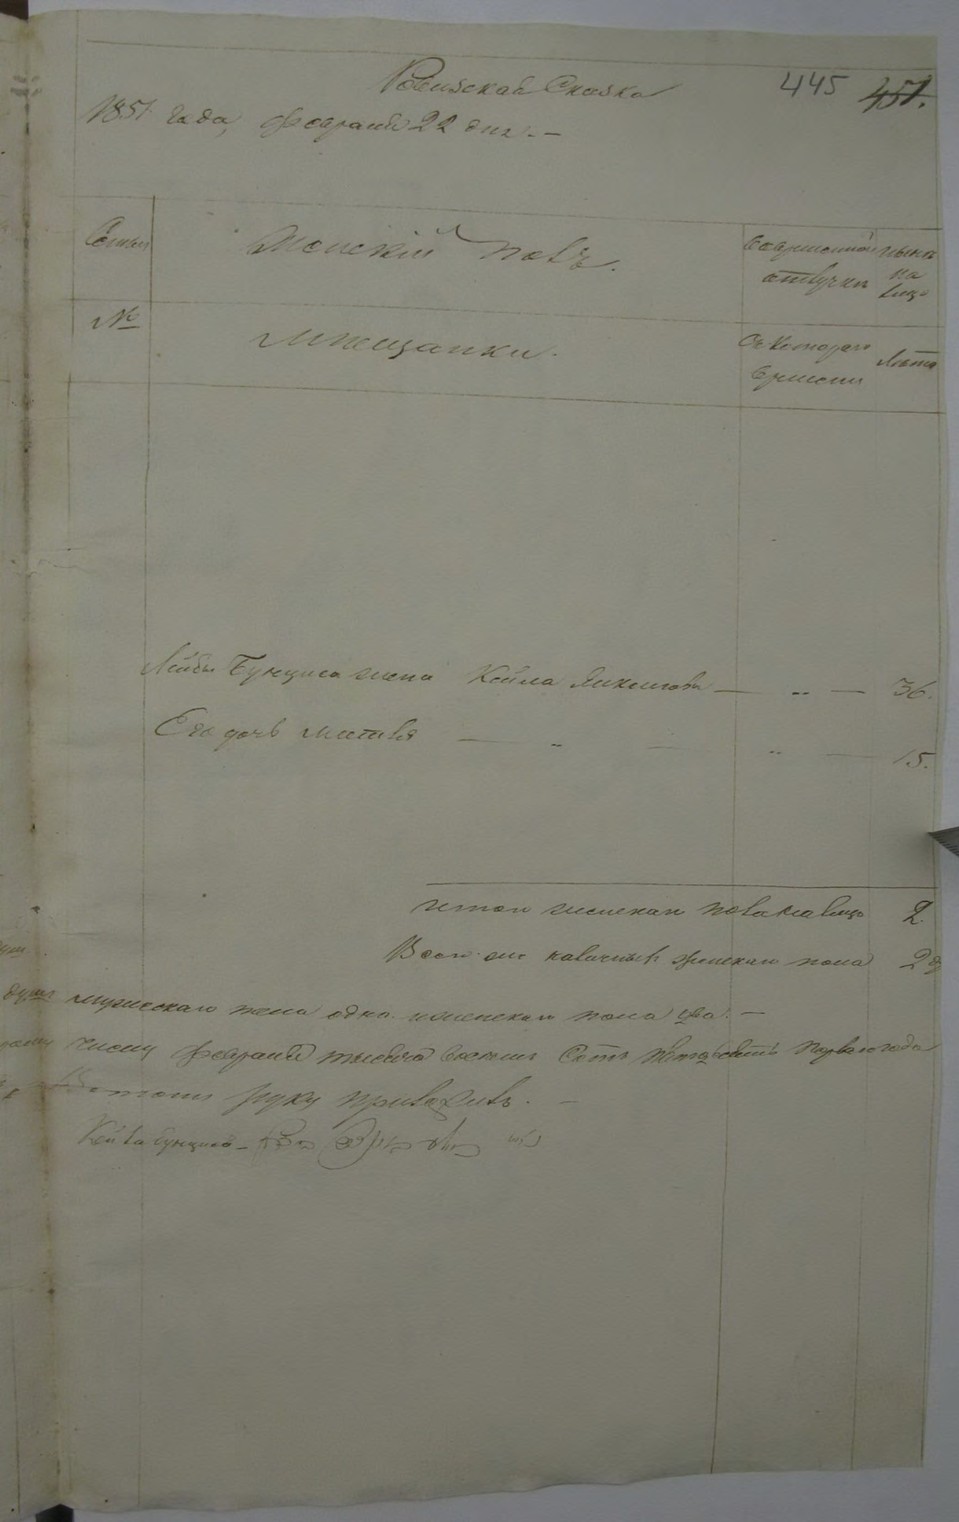 Ревизская Сказка 445 451.
1851 Года, февраля 22 дня. —
Семьи Женский полъ. Во временной отлучкѣ нынѣ на лицо
№ Мѣщанки. Съ котораго времени Лѣта
Лейбы Бунциса жена Кейла Янкелева — „ — 36.
Его дочь — „ — „ — 15.
Итого женскаго пола на лицо 2.
Всего наличныхъ женскаго пола 2
душъ мужескаго пола одна и женскаго пола два. —
числу февраля тысяча восемь Сотъ пятьдесятъ перваго года
руку приложилъ. —
Лейба Бунцисъ —